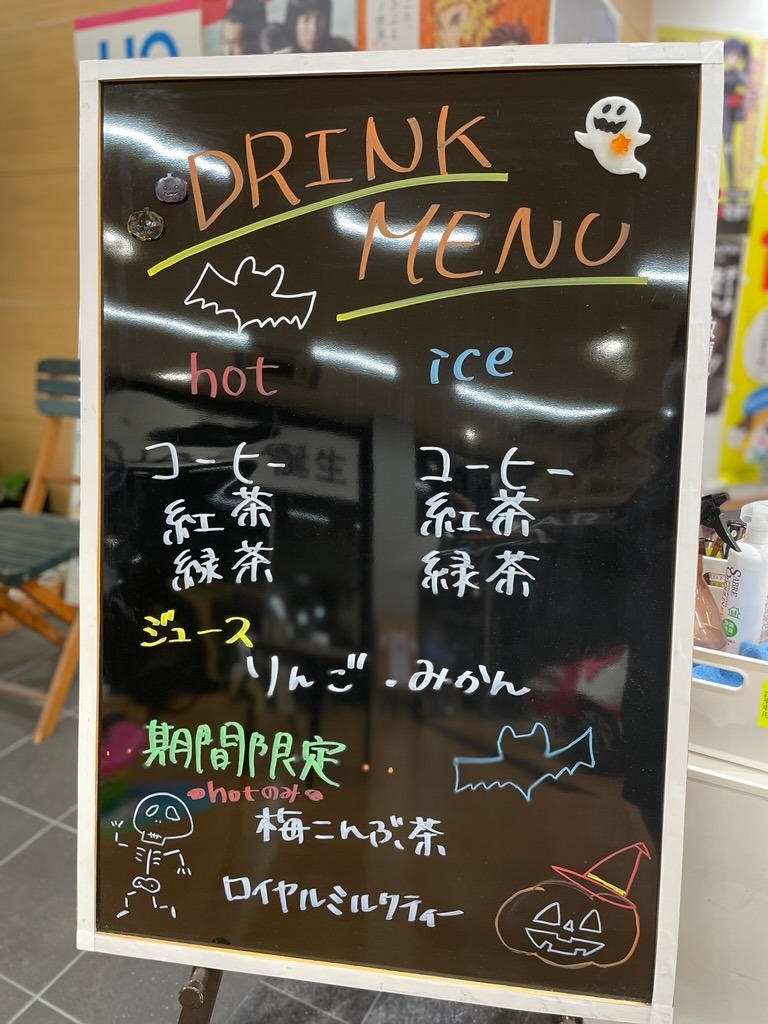 DRINK
MENU
hot ice
コーヒー コーヒー
紅茶 紅茶
緑茶 緑茶
ジュース
りんご・みかん
期間限定
hotのみ
梅こんぶ茶
ロイヤルミルクティー
誕生